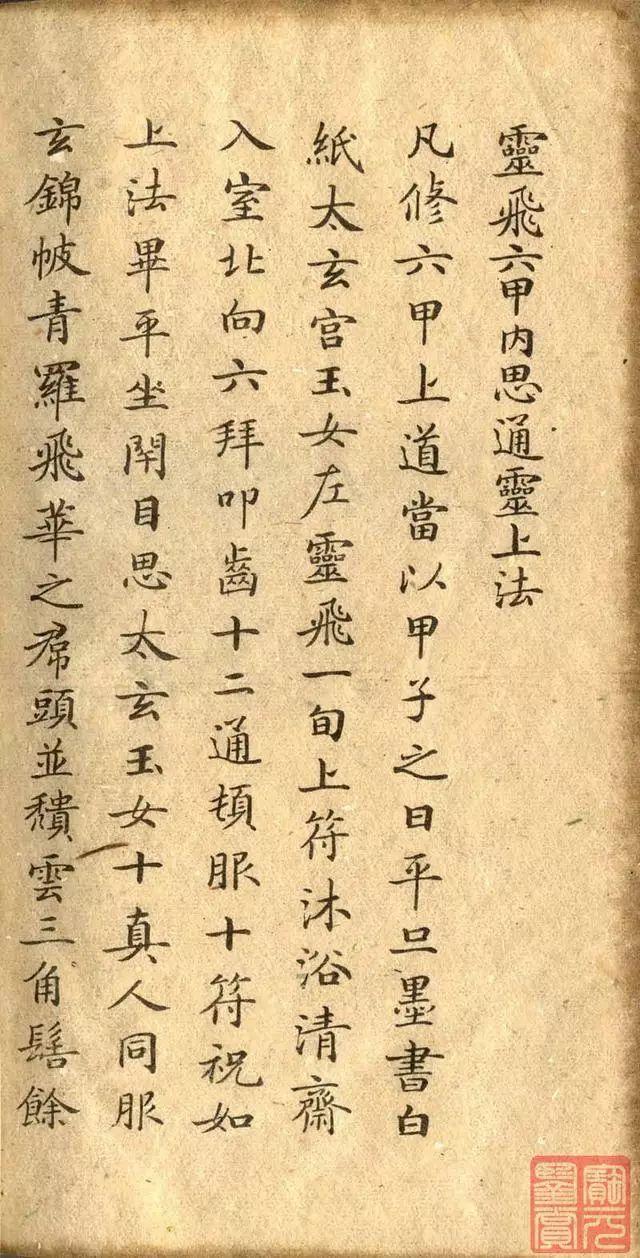 靈飛六甲内思通靈上法
凡修六甲上道當以甲子之日平旦墨書白
紙太玄宮玉女左靈飛一旬上符沐浴清齋
入室北向六拜叩齒十二通頓服十符祝如
上法畢平坐閇目思太玄玉女十真人同服
玄錦帔青羅飛華之帬頭並頽雲三角髻餘
寶元
鑒賞